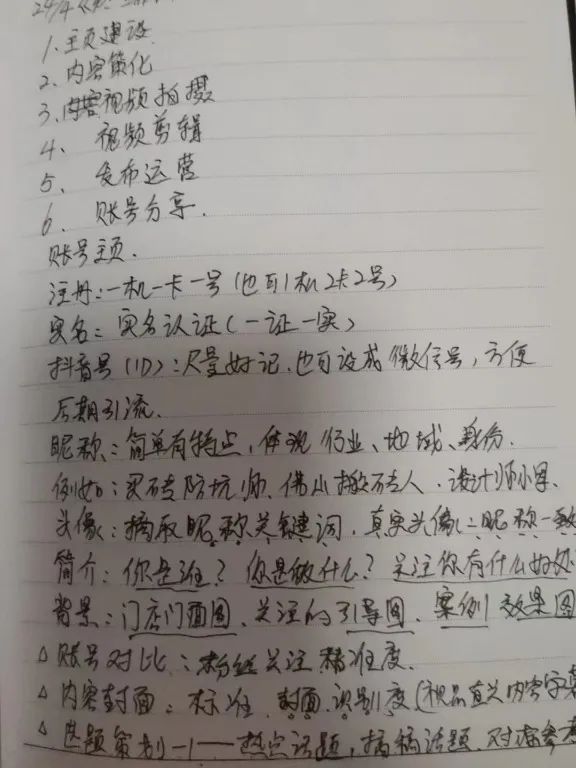 24/4
1. 主页建设
2. 内容策化
3. 内容视频拍摄
4、 视频剪辑
5、 发布运营
6. 账号分享.
账号主页.
注册:一机一卡一号(也可1机2卡2号)
实名:实名认证(一证一实)
抖音号(ID):尽量好记.也可设成微信号,方便
后期引流.
昵称:简单有特点,体现行业、地域、身份.
例如:买砖防坑师、佛山搬砖人、设计师小
头像:摘取昵称关键词,真实头像:昵称一致
简介:你是谁?你是做什么?关注你有什么好处
背景:门店门面图、关注的引导图、案例效果图
△ 账号对比:粉丝关注精准度.
△ 内容封面:标准 封面.识别度(视品直义内容字幕
△ 选题策划-1——热点话题,搞稿话题、对标参考